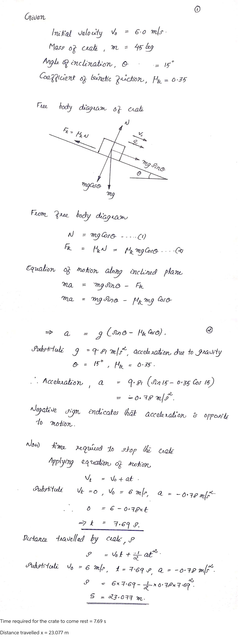 ①
Given
Initial velocity V₀ = 6.0 m/s
Mass of crate, m = 45 kg
Angle of inclination, θ = 15°
Coefficient of kinetic friction, μₖ = 0.35
Free body diagram of crate
N
Fₖ = μₖ N
mg Sinθ
θ
mg Cosθ
mg
From free body diagram
N = mg Cosθ ....(1)
Fₖ = μₖ N = μₖ mg Cosθ ....(2)
Equation of motion along inclined plane
ma = mg Sinθ - Fₖ
ma = mg Sinθ - μₖ mg Cosθ
②
⇒ a = g (Sinθ - μₖ Cosθ)
Substitute g = 9.81 m/s², acceleration due to gravity
θ = 15°, μₖ = 0.35.
∴ Acceleration, a = 9.81 (Sin 15 - 0.35 Cos 15)
= -0.78 m/s²
Negative sign indicates that acceleration is opposite
to motion.
Now time required to stop the crate
Applying equation of motion
= V₀ + at
Substitute = 0, V₀ = 6 m/s, a = -0.78 m/s²
∴ 0 = 6 - 0.78×t
⇒ t = 7.69 s.
Distance travelled by crate, s
s = V₀t + ½ at²
Substitute V₀ = 6 m/s, t = 7.69 s, a = -0.78 m/s²
s = 6×7.69 - ½×0.78×7.69²
S = 23.077 m.
Time required for the crate to come rest = 7.69 s
Distance travelled s = 23.077 m